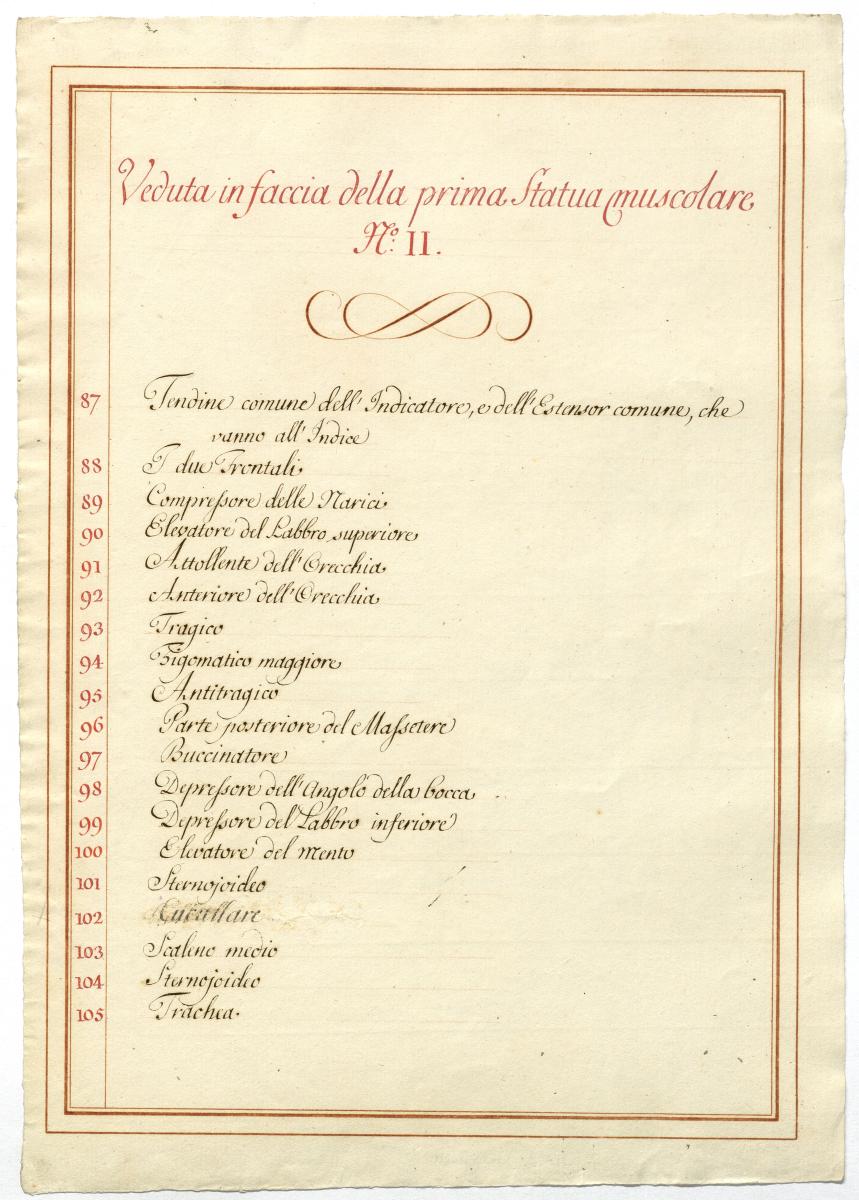 Veduta in faccia della prima Statua muscolare
N.º II.
87 Tendine comune dell'Indicatore, e dell'Estensor comune, che
vanno all'Indice
88 I due Frontali
89 Compressore delle Narici
90 Elevatore del Labbro superiore
91 Attollente dell'Orecchia
92 Anteriore dell'Orecchia
93 Tragico
94 Zigomatico maggiore
95 Antitragico
96 Parte posteriore del Massetere
97 Buccinatore
98 Depressore dell'Angolo della bocca
99 Depressore del Labbro inferiore
100 Elevatore del mento
101 Sternojoideo
102 Cucullare
103 Scaleno medio
104 Sternojoideo
105 Trachea.